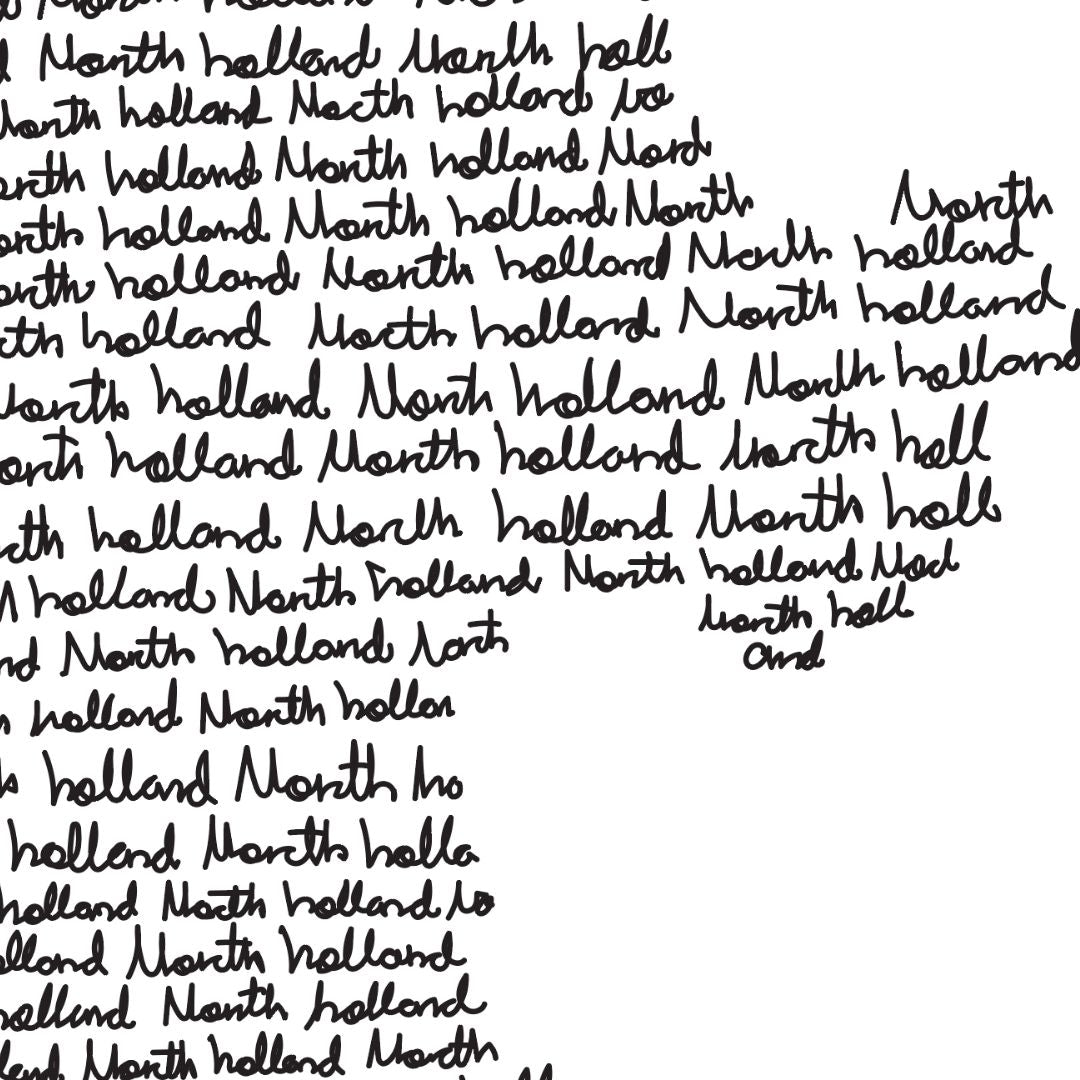 North holland North holl
North holland North holland No
orth holland North holland Nord
orth holland North holland North North
orth holland North holland North holland
rth holland North holland North holland
North holland North holland North holland
orth holland North holland North holl
rth holland North holland North holl
holland North holland North holland Nod
North holl
and
nd North holland North
h holland North hollan
holland North ho
holland North holla
holland North holland No
olland North holland
holland North holland
land North holland North